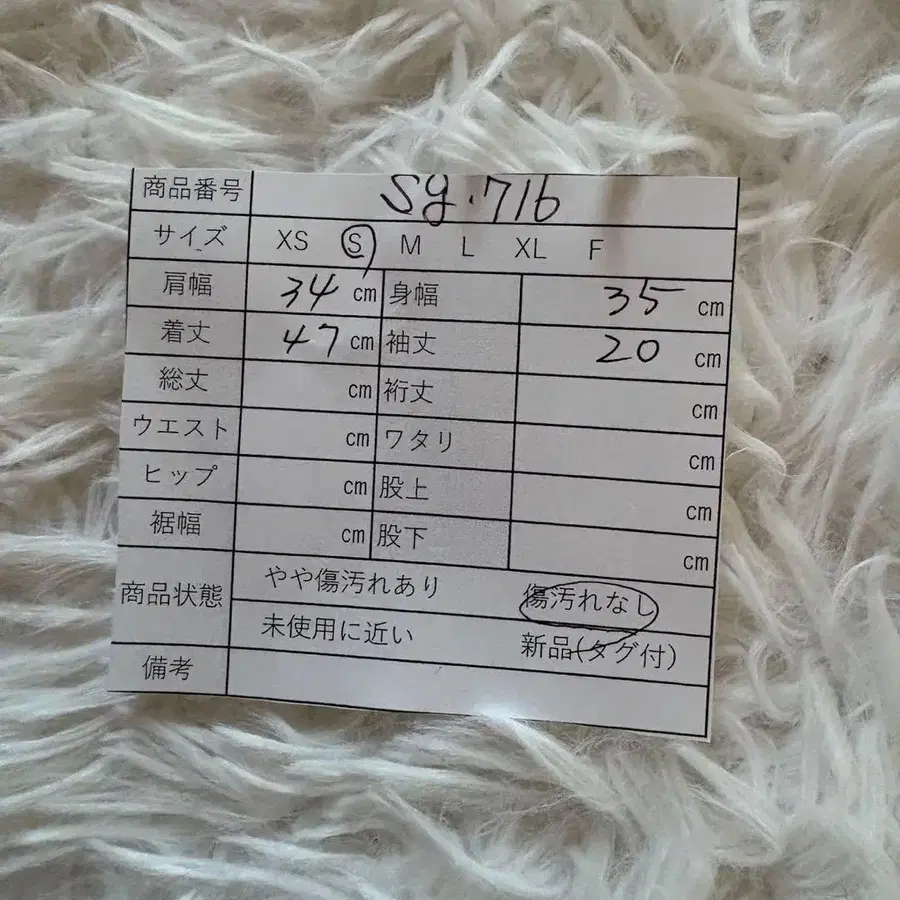 商品番号 Sg.716
サイズ XS S M L XL F
肩幅 34 cm 身幅 35 cm
着丈 47 cm 袖丈 20 cm
総丈 cm 裄丈 cm
ウエスト cm ワタリ cm
ヒップ cm 股上 cm
裾幅 cm 股下 cm
商品状態 やや傷汚れあり 傷汚れなし
未使用に近い 新品(タグ付)
備考